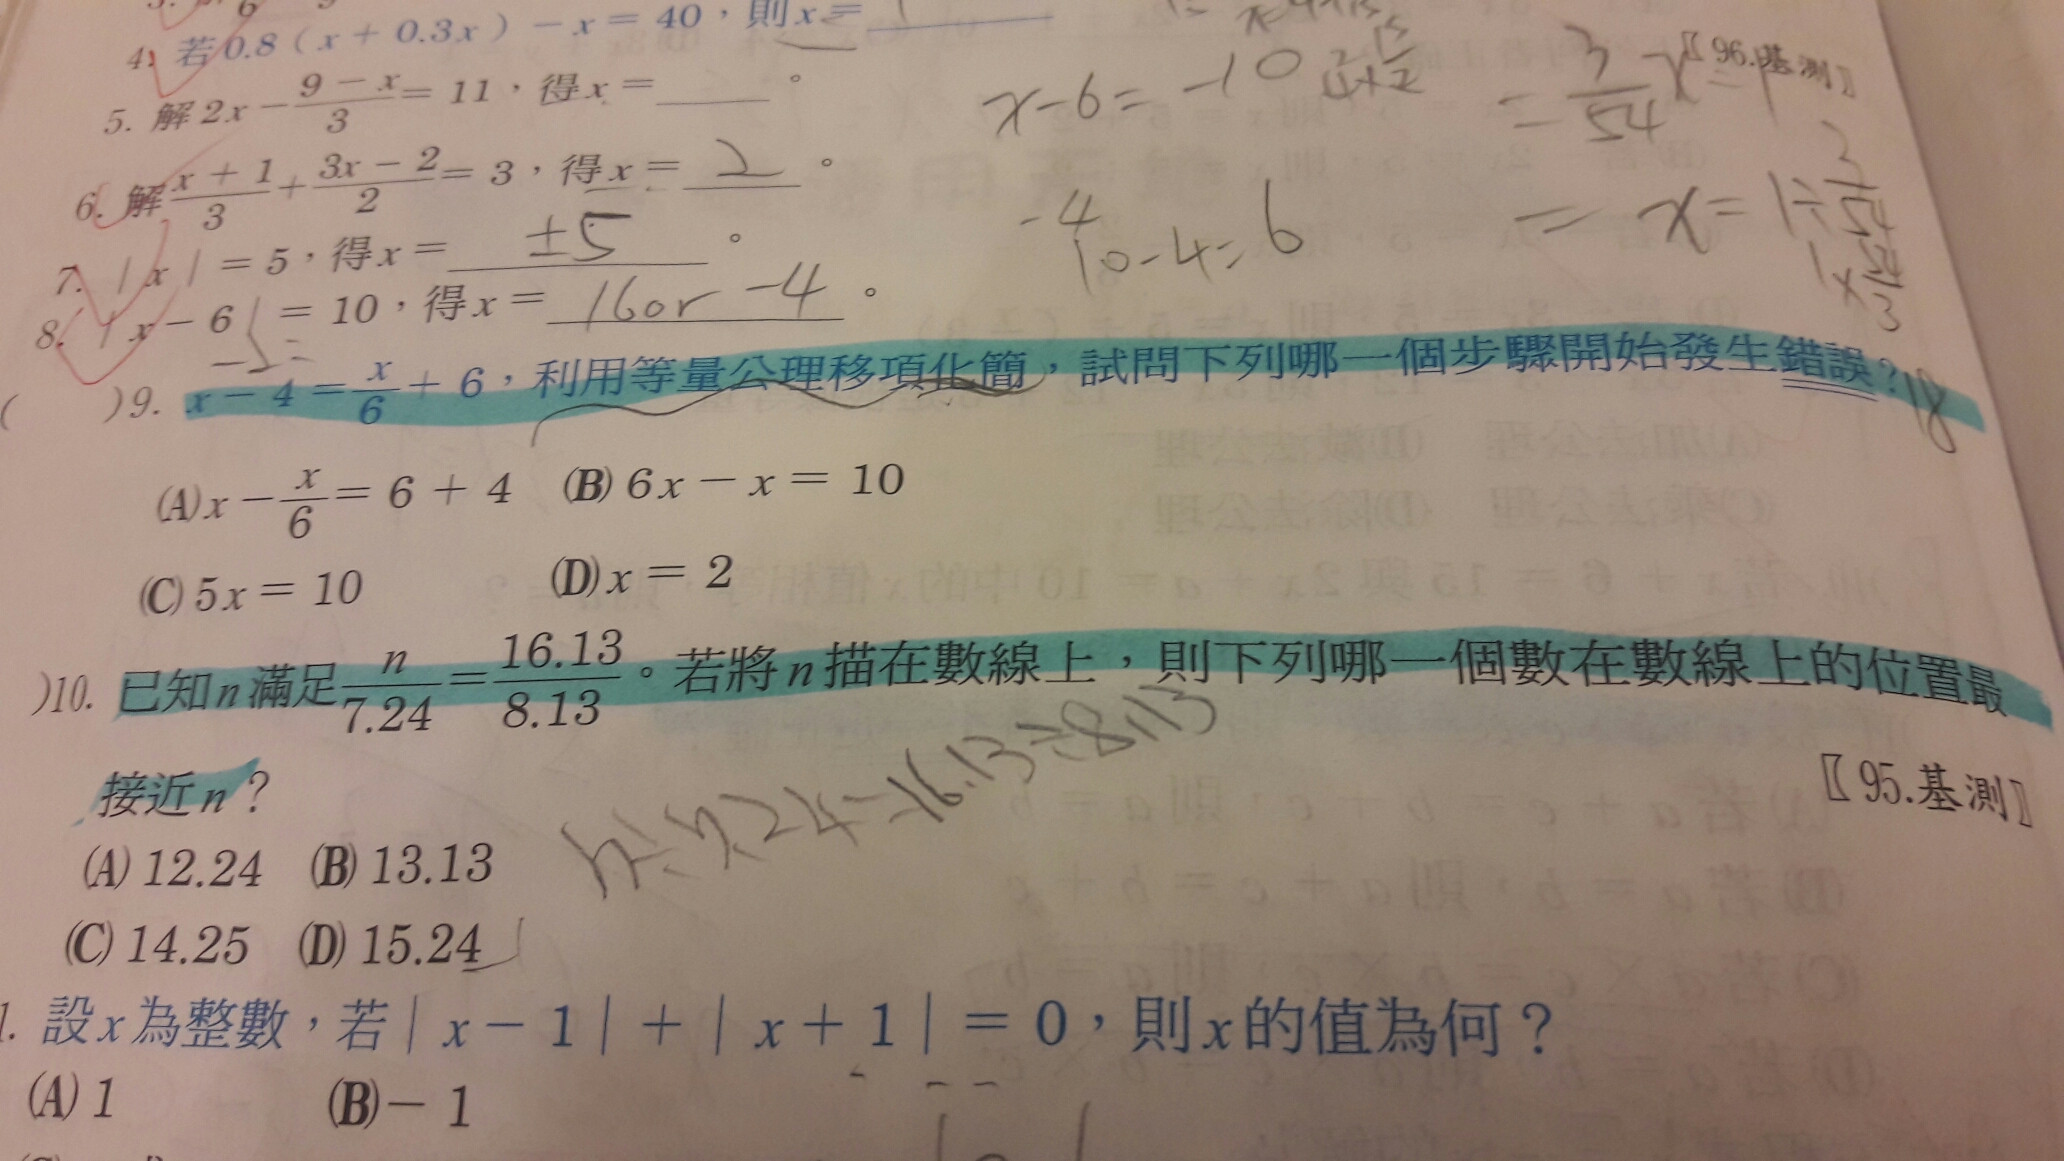 4. 若0.8(x+0.3x)-x=40，則x=
x-6=-10
〖96.基測〗
5. 解2x-\frac{9-x}{3}=11，得x=____。
=\frac{3}{54}x=1
6. 解\frac{x+1}{3}+\frac{3x-2}{2}=3，得x=2。
-4
10-4=6
7. |x|=5，得x=±5。
8. |x-6|=10，得x=16or -4。
( )9. x-4=\frac{x}{6}+6，利用等量公理移項化簡，試問下列哪一個步驟開始發生錯誤？18
(A)x-\frac{x}{6}=6+4 (B)6x-x=10
(C)5x=10 (D)x=2
)10. 已知n滿足\frac{n}{7.24}=\frac{16.13}{8.13}。若將n描在數線上，則下列哪一個數在數線上的位置最
接近n？
〖95.基測〗
n÷7.24=16.13÷8.13
(A)12.24 (B)13.13
(C)14.25 (D)15.24
1. 設x為整數，若|x-1|+|x+1|=0，則x的值為何？
(A)1 (B)-1